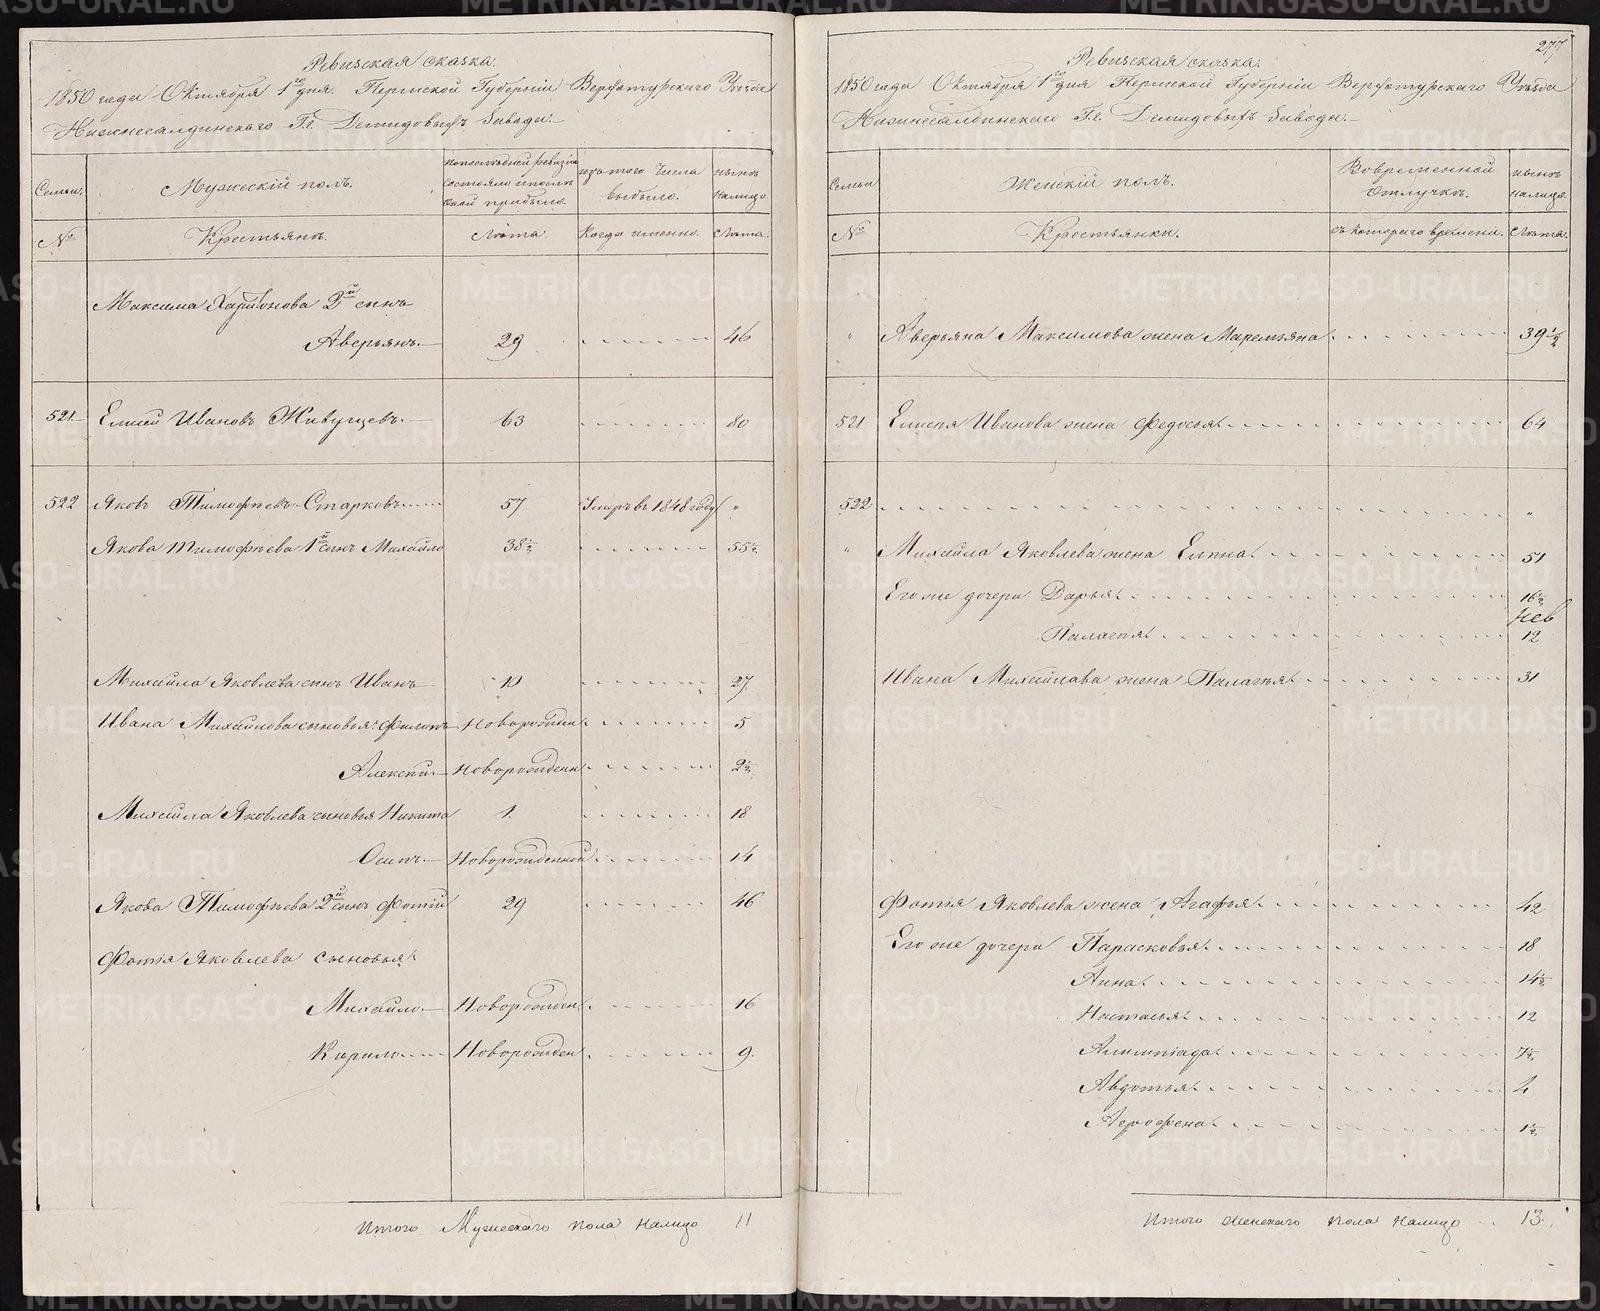 Ревизская сказка.
1850 года Октября 1го дня. Пермской Губерніи Верхотурскаго Уѣзда
Нижнесалдинскаго Гг. Демидовыхъ Завода.
Семьи.
Мужескій полъ.
По последней ревизіи состояло и после оной прибыло.
Изъ того числа выбыло.
Нынѣ налицо.
№
Крестьянъ.
Лѣта.
Когда именно.
Лѣта.
Максима Харитонова 2й сынъ
Аверьянъ. 29 46
521. Елисей Ивановъ Живущевъ. 63 80
522 Яковъ Тимофѣевъ Старковъ 57 Умеръ въ 1848 году "
Якова Тимофѣева 1й сынъ Михайло 38½ 55½
Михайла Яковлева сынъ Иванъ 10 27
Ивана Михайлова сыновья: Филипъ Новорожден 5
Алексѣй Новорожденн 2½
Михайла Яковлева сыновья Никита 1. 18
Осипъ Новорожденной 14
Якова Тимофѣева 2й сынъ Фотій 29 46
Фотія Яковлева сыновья:
Михайло Новорожден 16
Кирило Новорожден 9.
Итого Мужескаго пола налицо 11
277
Ревизская сказка.
1850 года Октября 1го дня Пермской Губерніи Верхотурскаго Уѣзда
Нижнесалдинскаго Гг. Демидовыхъ Завода.
Семьи
Женскій полъ.
Во временной отлучкѣ.
Нынѣ налицо.
№
Крестьянки.
Съ котораго времени.
Лѣта.
" Аверьяна Максимова жена Маремьяна 39½
521 Елисея Иванова жена Федосья 64
522 "
" Михайла Яковлева жена Елена 51
Его же дочери Дарья 16½
Пелагея 12
Ивана Михайлова жена Палагея 31
Фотія Яковлева жена Агафья 42
Его же дочери Парасковья 18
Анна 14½
Настасья 12
Алимпіада 7½
Авдотья 4
Агрофена 1½
Итого Женскаго пола налицо 13.
METRIKI.GASO-URAL.RU